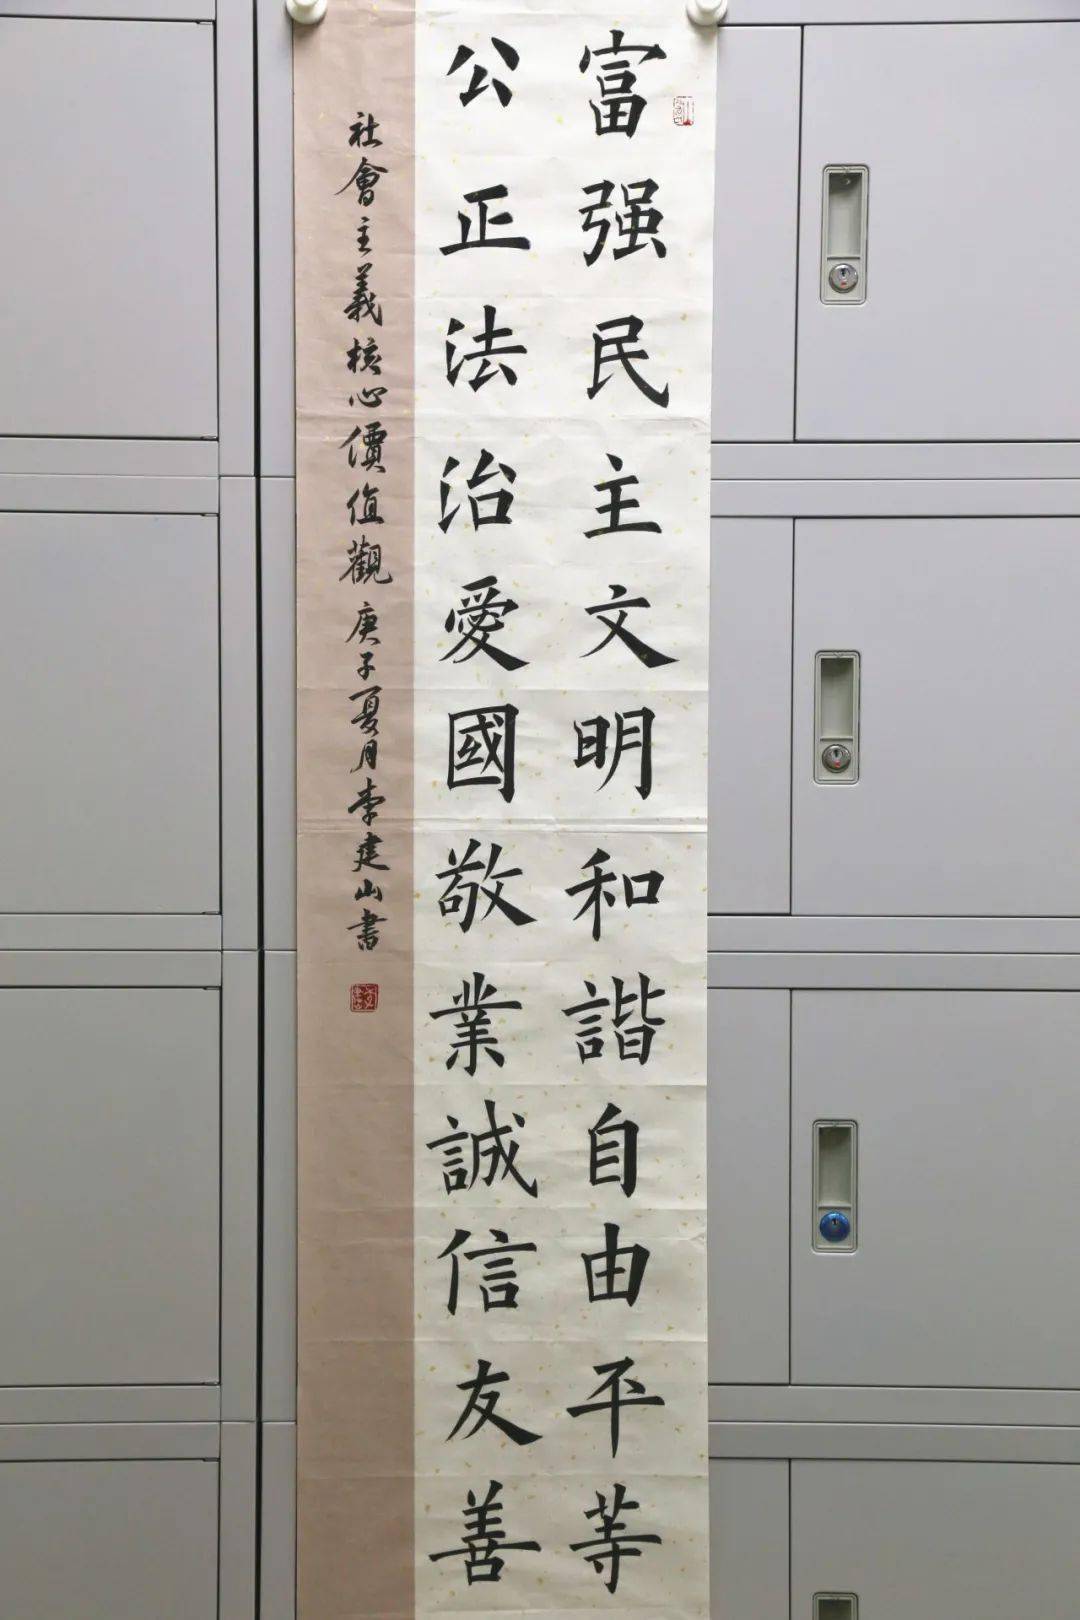 富强民主文明和諧自由平等
公正法治愛國敬業誠信友善
社會主義核心價值觀 庚子夏月李建山書